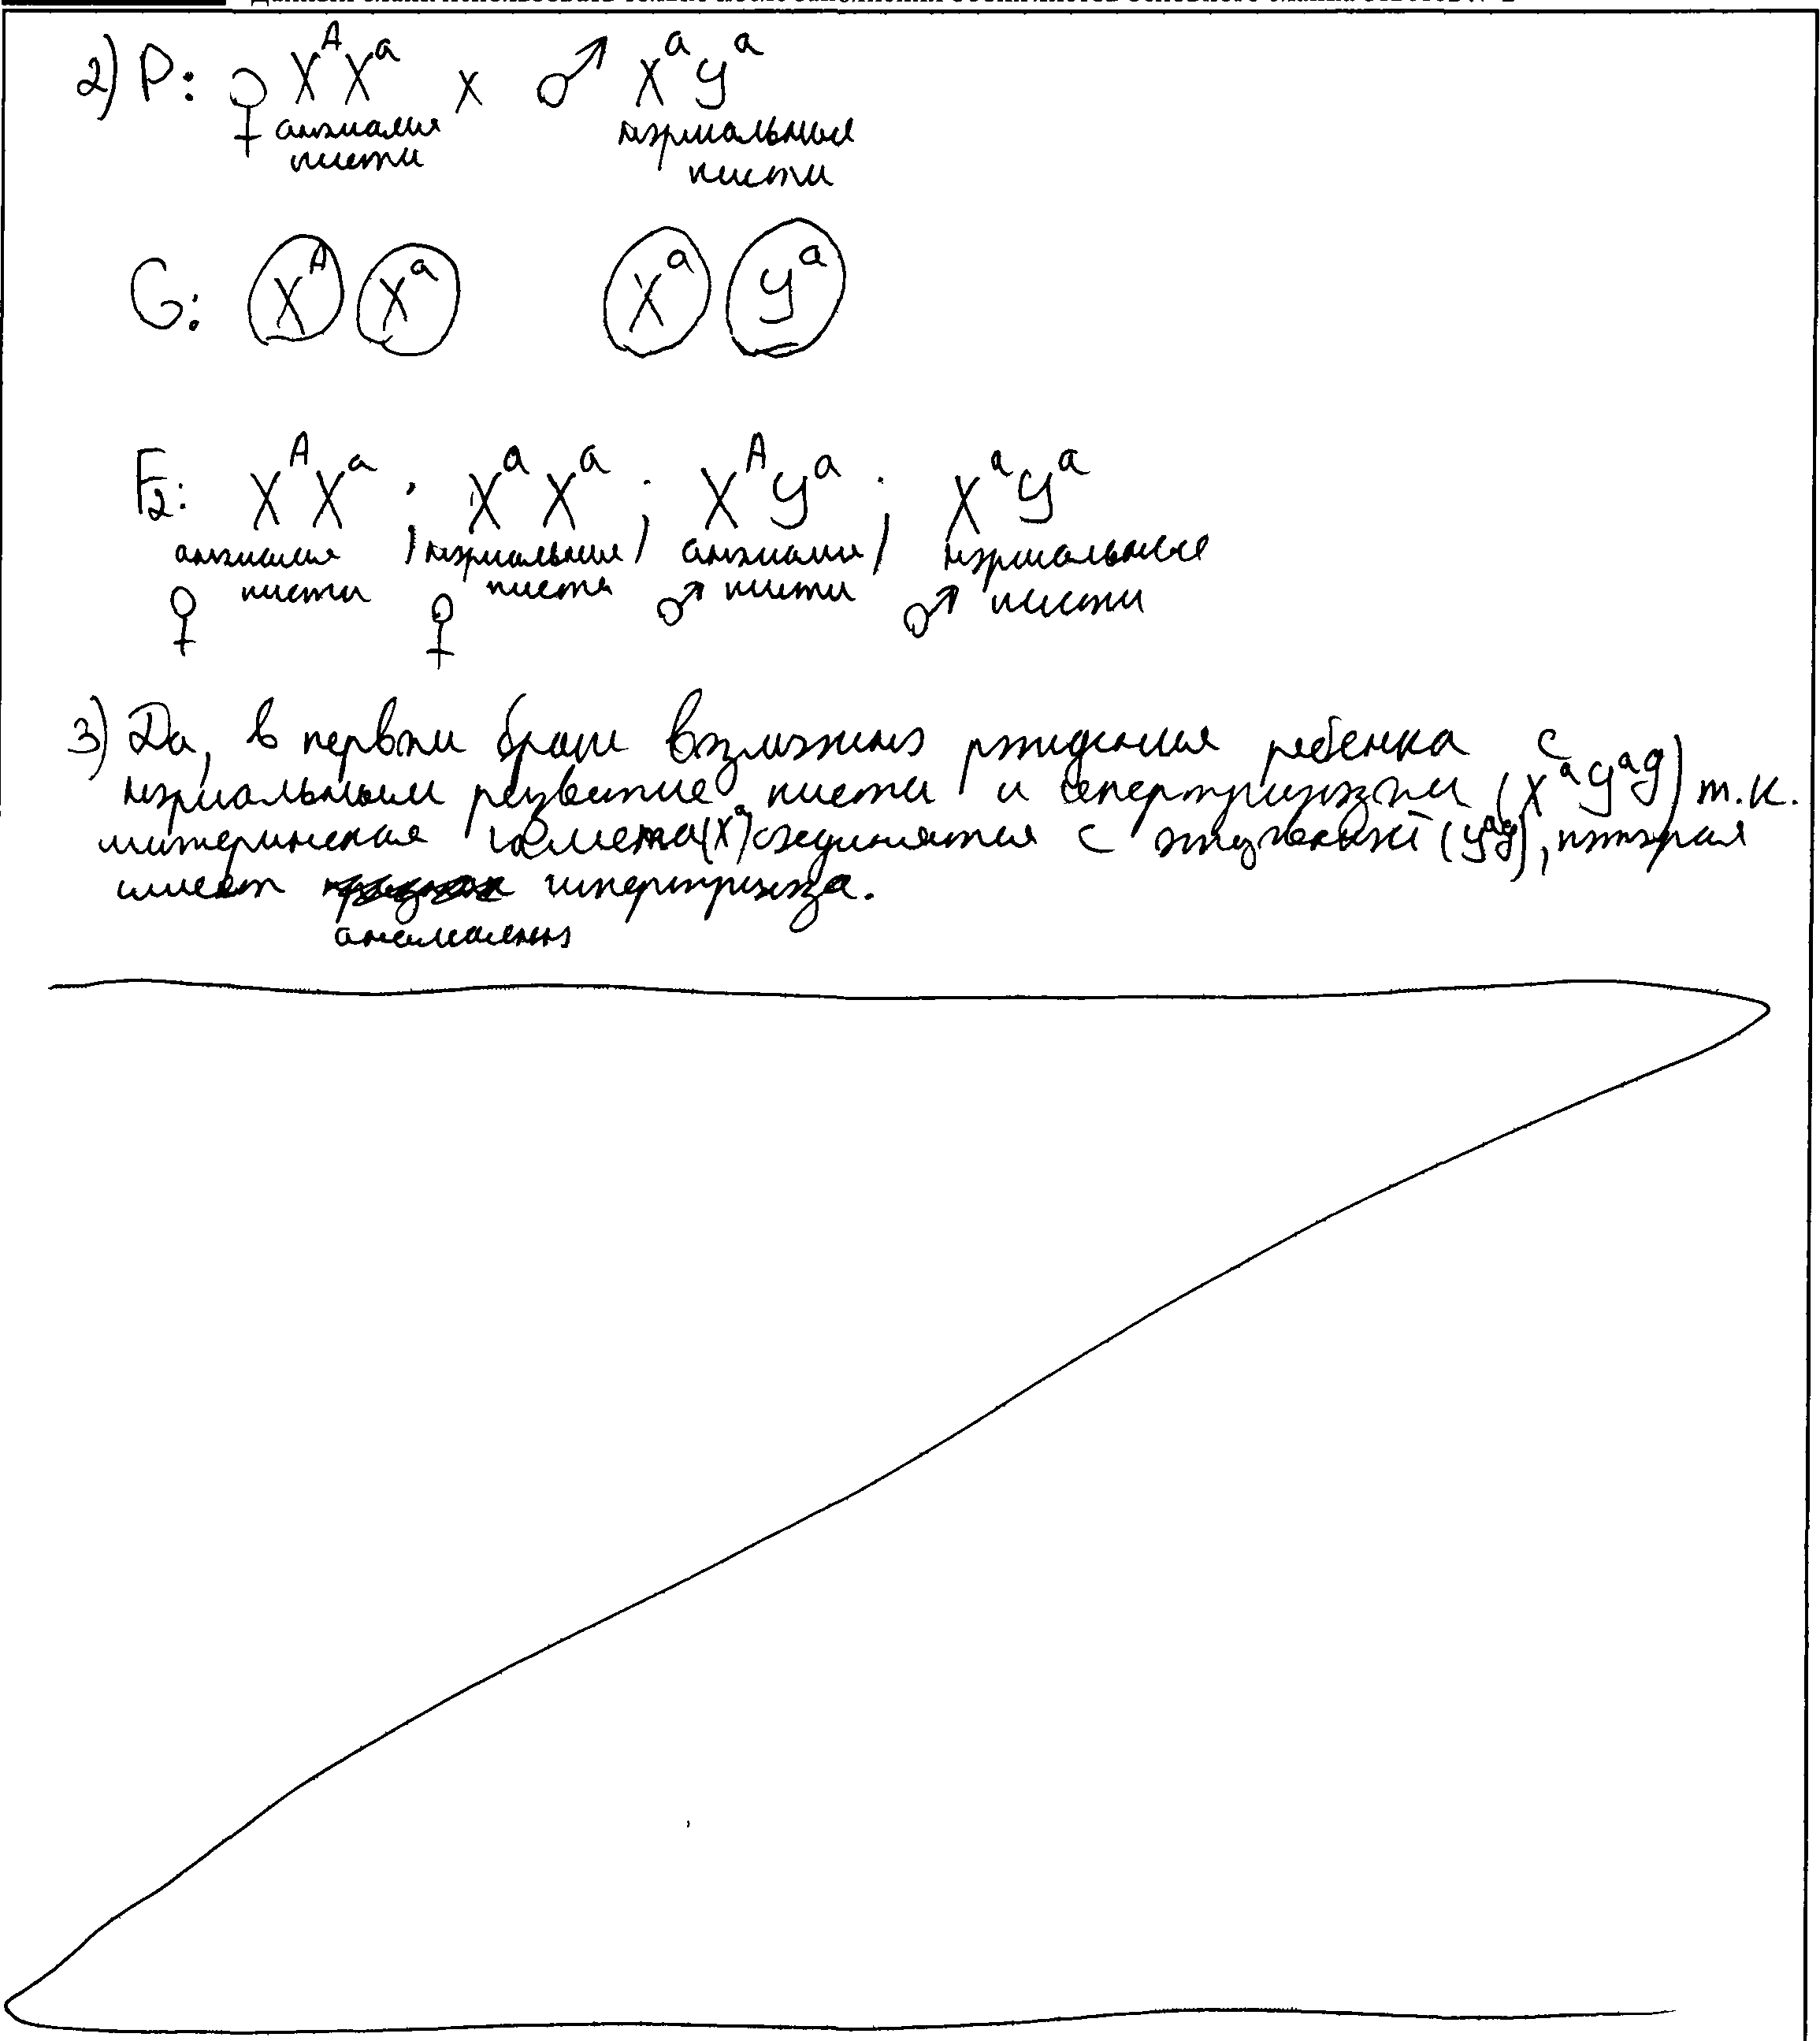 2) P: ♀ X^A X^a x ♂ X^a Y^a
аномалия нормальные
кисти кисти
G: X^A X^a X^a Y^a
F2: X^A X^a ; X^a X^a ; X^A Y^a ; X^a Y^a
аномалия / нормальные / аномалия / нормальные
кисти кисти кисти кисти
♀ ♀ ♂ ♂
3) Да, в первом браке возможно рождения ребенка с
нормальным развитие кисти и гипертрихозом (X^a Y^ag) т.к.
материнская гамета (X^a) соединятся с отцовской (Y^ag), которая
имеет гипертрихоза.